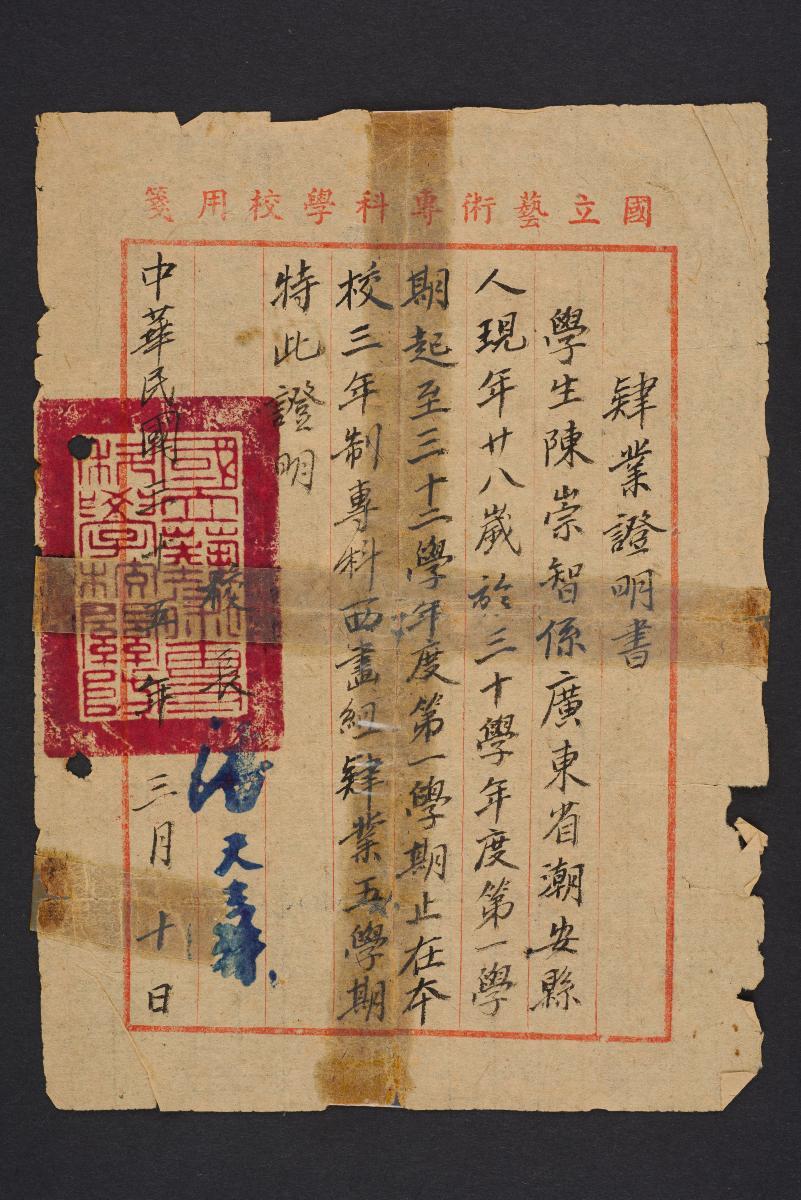 國立藝術專科學校用箋
肄業證明書
學生陳崇智係廣東省潮安縣
人現年廿八歲於三十學年度第一學
期起至三十二學年度第一學期止在本
校三年制專科西畫組肄業五學期
特此證明
校長 潘天壽
中華民國三十五年三月十日